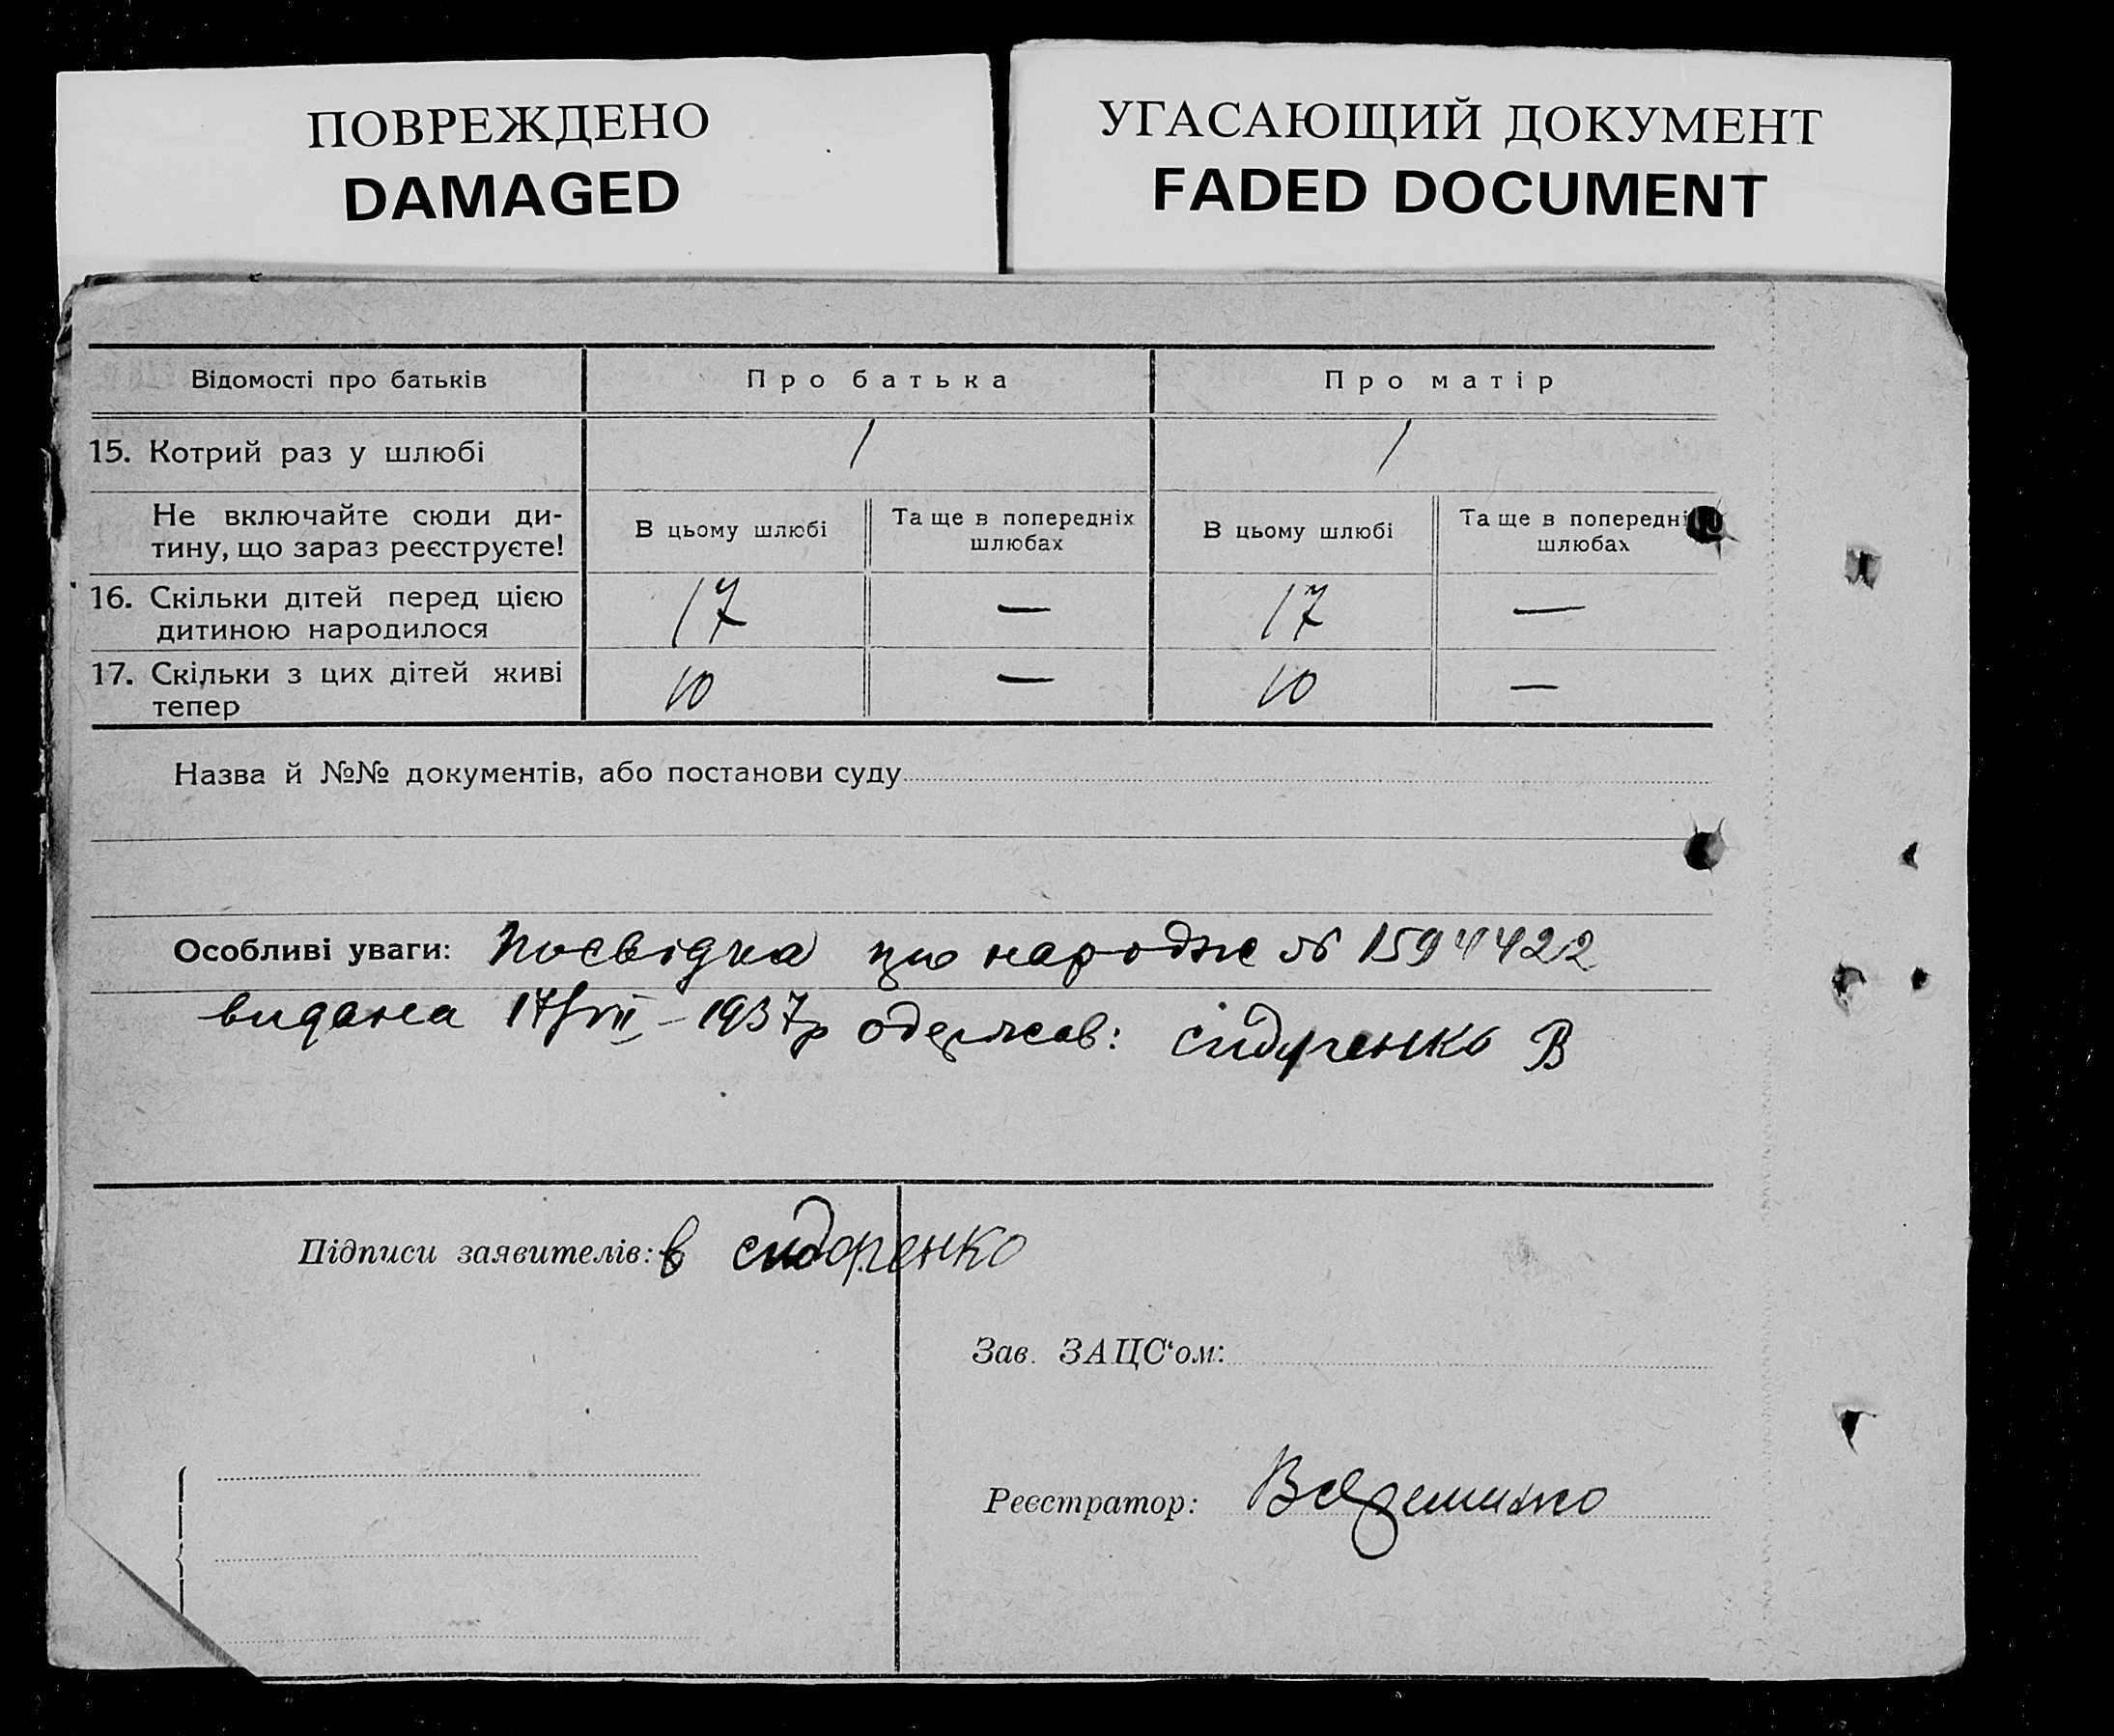 ПОВРЕЖДЕНО
DAMAGED
УГАСАЮЩИЙ ДОКУМЕНТ
FADED DOCUMENT
Відомості про батьків Про батька Про матір
15. Котрий раз у шлюбі 1 1
Не включайте сюди ди-
тину, що зараз реєструєте!
В цьому шлюбі
Та ще в попередніх
шлюбах
В цьому шлюбі
Та ще в попередні
шлюбах
16. Скільки дітей перед цією
дитиною народилося
17 — 17 —
17. Скільки з цих дітей живі
тепер
10 — 10 —
Назва й №№ документів, або постанови суду
Особливі уваги: Посвідка про народж № 1594422
видана 17/VII – 1937р одержав: Сидоренко В
Підписи заявителів: В Сидоренко
Зав. ЗАЦС‘ом:
Реєстратор: